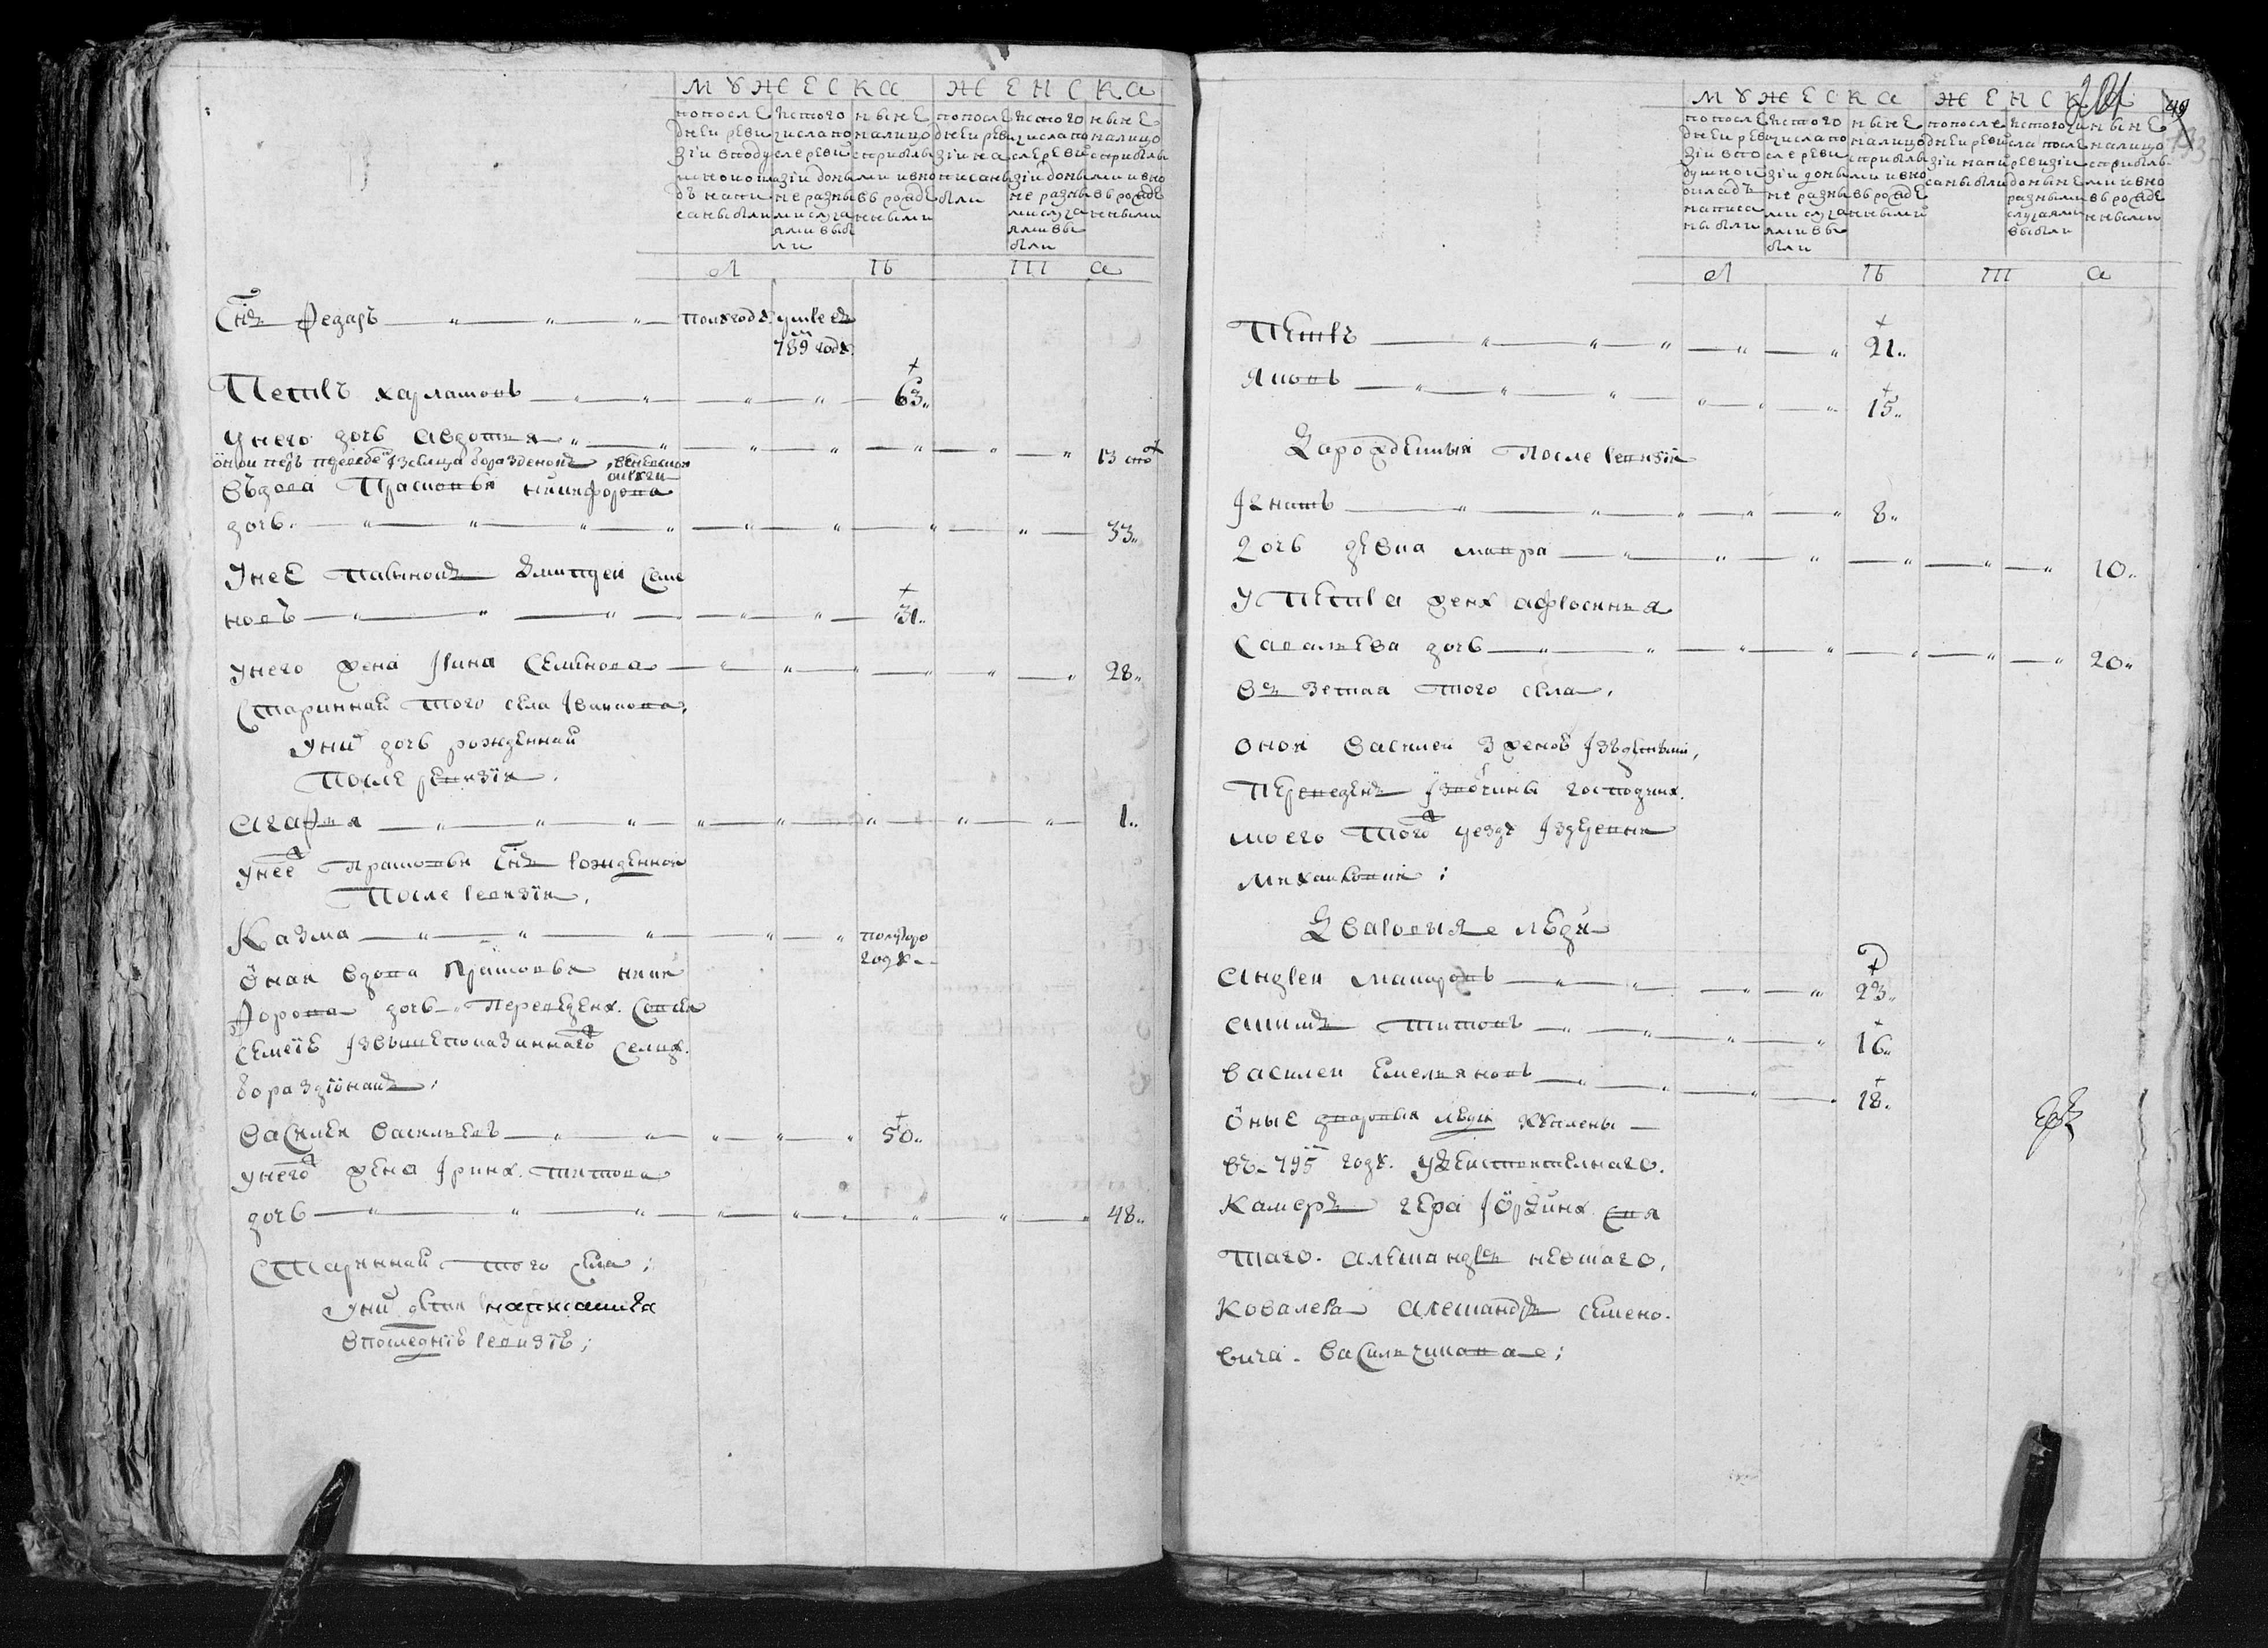 МУЖЕСКА ЖЕНСКА
попосле
днеи реви
зiи вподу
шноиокла
дъ напи
саны были
истого
числа по
слереви
зiи доны
не разны
ми случа
ями выб
ли
ныне
налицо
сприбылы
ми ивно
въ рожде
нными
попосле
днеи реви
зiи на
писаны
были
истого
числа по
слереви
зiи доны
не разны
ми случа
ями вы
были
ныне
налицо
сприбылы
ми ивно
въ рожде
нными
Л Ѣ Т А
Снъ Федаръ полугоду умре въ
789 году
Петръ харламовъ 63
Унего дочь Авдотья 13
Въдова Прасковья никифорова
дочь 33
Унее Семе
новъ 31
Унего жена Iрина Семiонова 28
Стариннай того села Iванкова
Уних дочь рожденнай
После ревизiи
Агафья 1
Унее Прасковьи Снъ рожденной
После ревизiи
Казма полтора
году
Оная вдова Прасковья ники
форова дочь переведена
семеiе Iзвышепоказаннаго селца
бораздiнакъ
Василеи Васильевъ 50
Унего жена Iрина титова
дочь 48
Стариннай того села
Уних дети написанныя
впоследнiе ревизiе
МУЖЕСКА ЖЕНСКА
попосле
днеи реви
зiи впо
душнои
окладъ
написа
ны были
истого
числа по
сле реви
зiи доны
не разны
ми случа
ями вы
были
ныне
налицо
сприбылы
ми ивно
въ рожде
нными
попосле
днеи реви
зiи напи
саны были
истогочи
сла после
ревизiи
доныне
разными
случаями
выбыли
ныне
налицо
сприбылы
ми ивно
въ рожде
нными
Л Ѣ Т А
Петръ 21
Яковъ 15
Зарожденныя После ревизiи
Iгнатъ 8
Дочь девка мавра 10
У Петра жена афросинья
Савальева дочь 20
Взетая того села
Оной Василеи зженой Iздетьми
Переведенъ Iзвотчины господина
моего того уезду Iздеревни
михалковки
Дваровыя люди
Андреи макаровъ 23
Акимъ титовъ 16
Василеи Емельяновъ 18
Оные дваровыя люди куплены
въ 795 году Удеиствителнаго
Камеръ гера Iордина свя
таго Александра невскаго
ковалера Александра Семено
вича Васильчикова